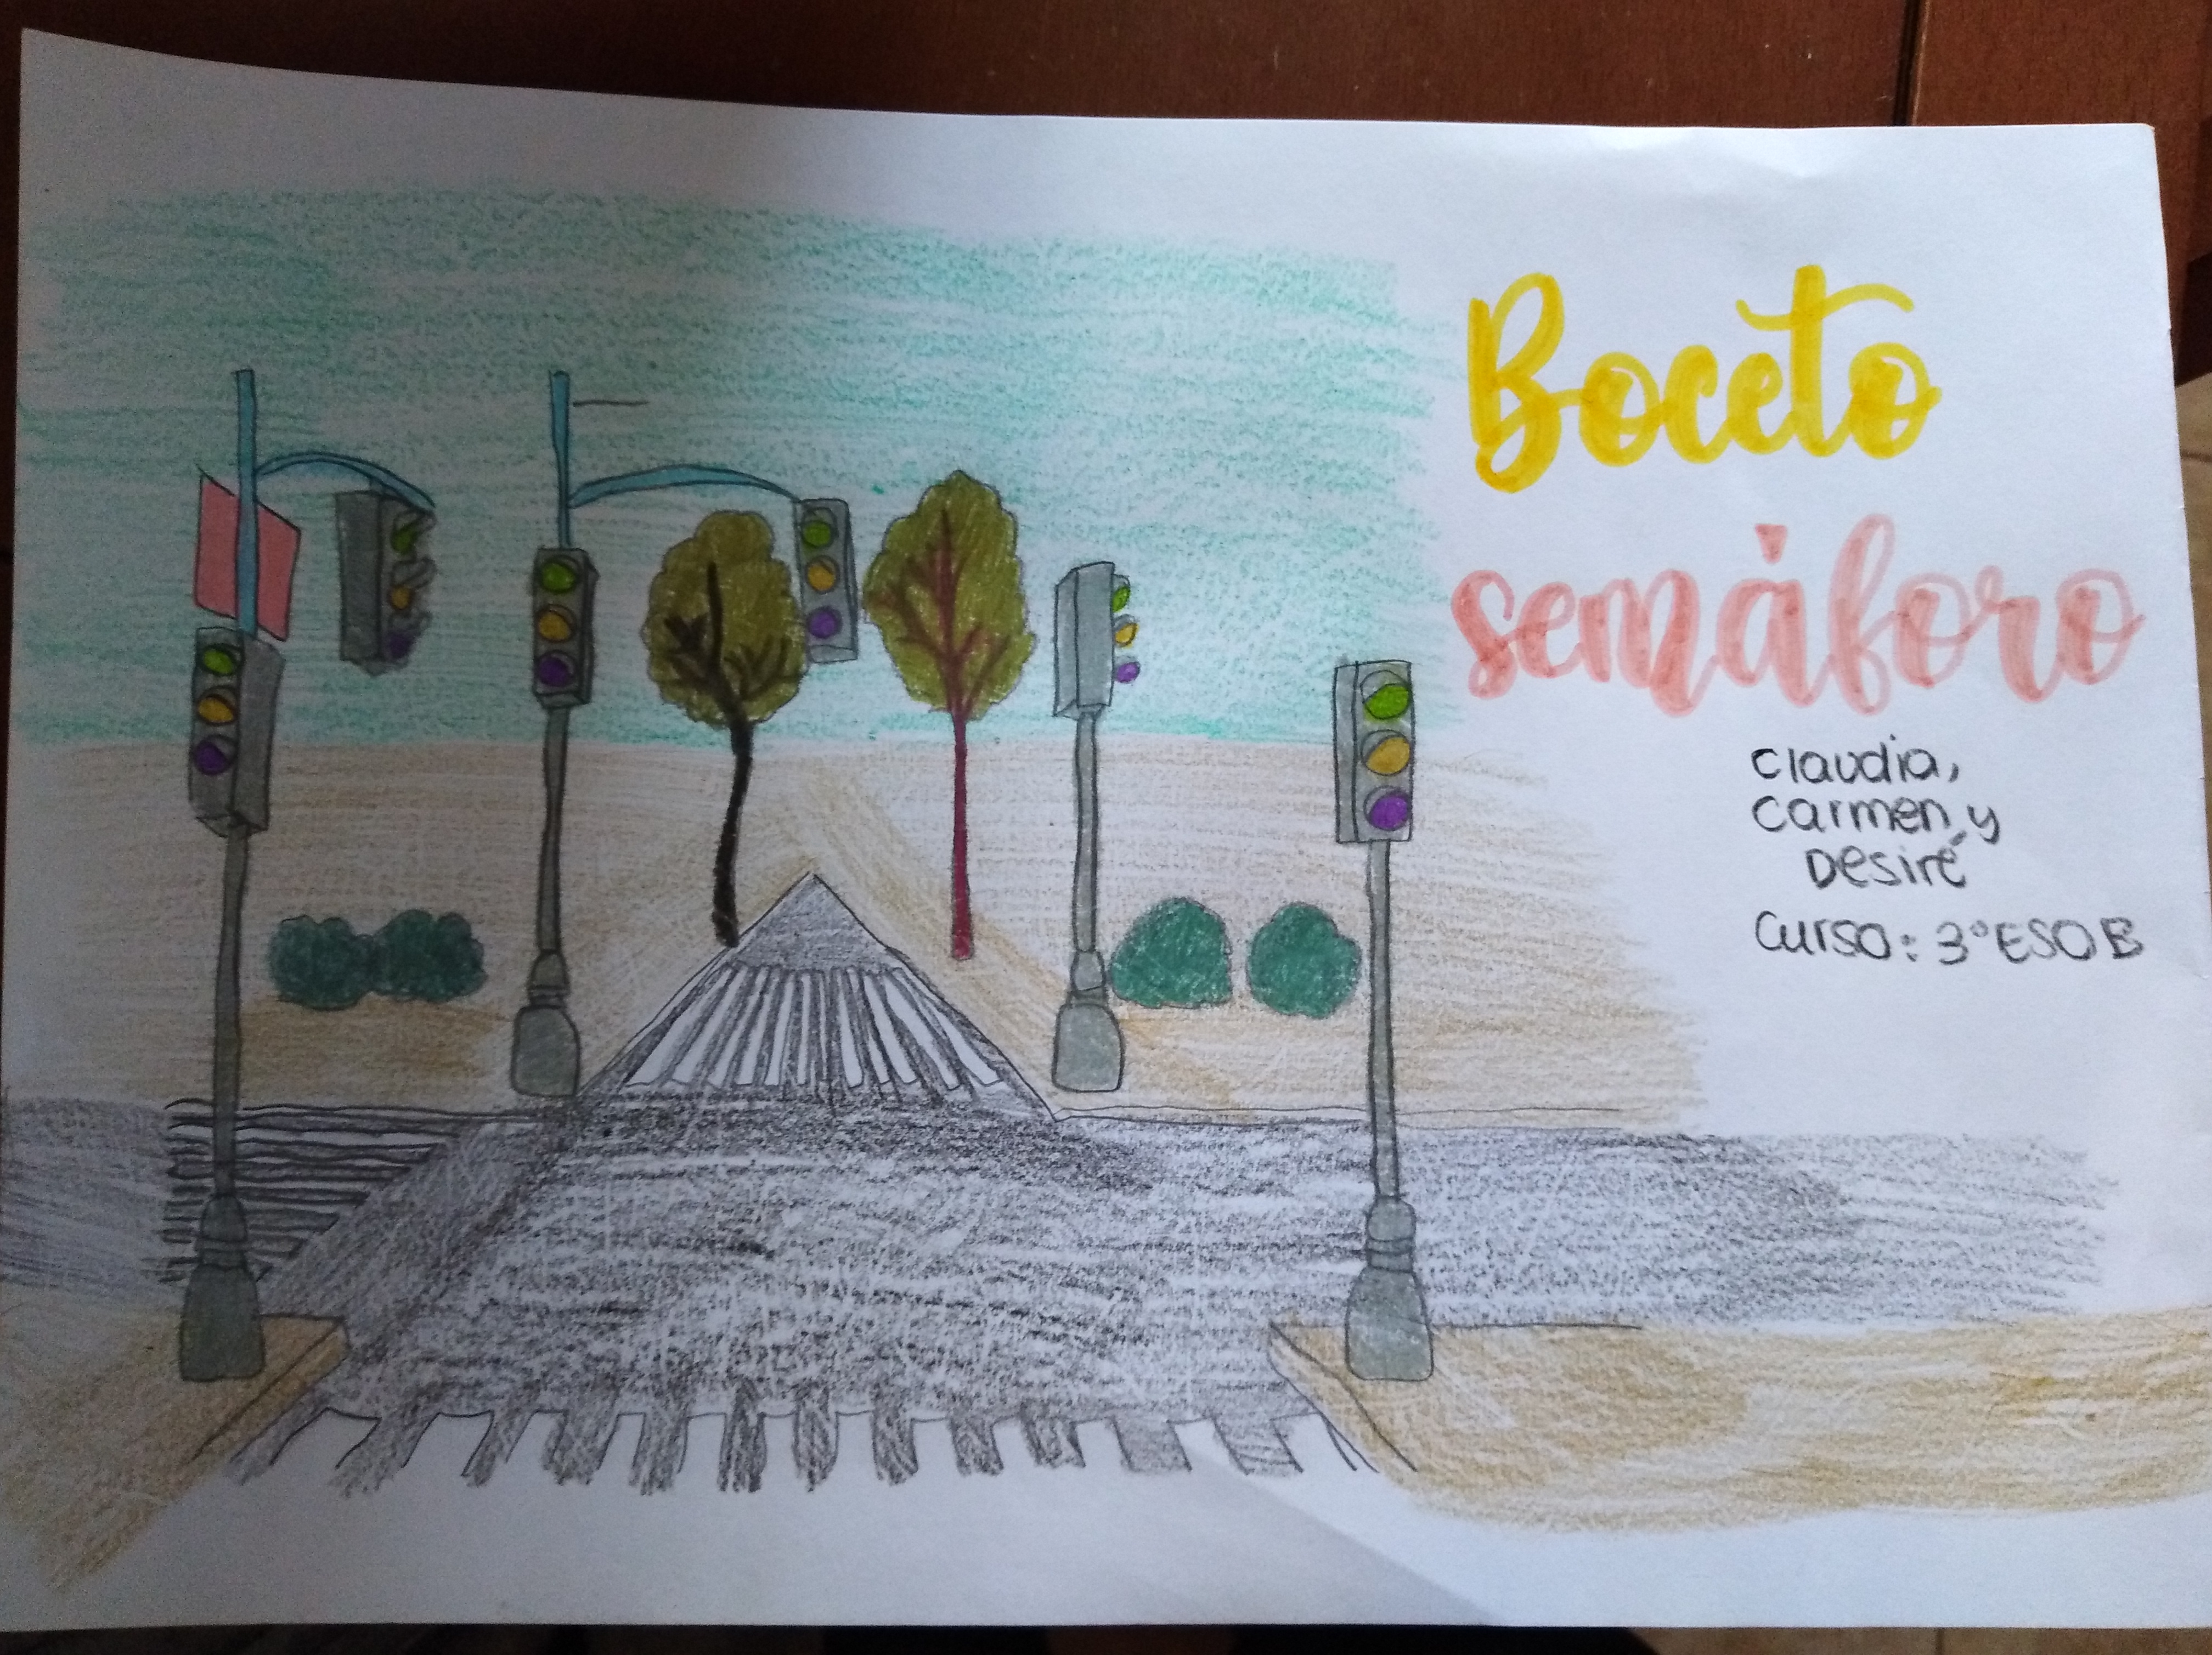 Boceto
semáforo
Claudia,
Carmen y
Desiré
Curso: 3º ESO B